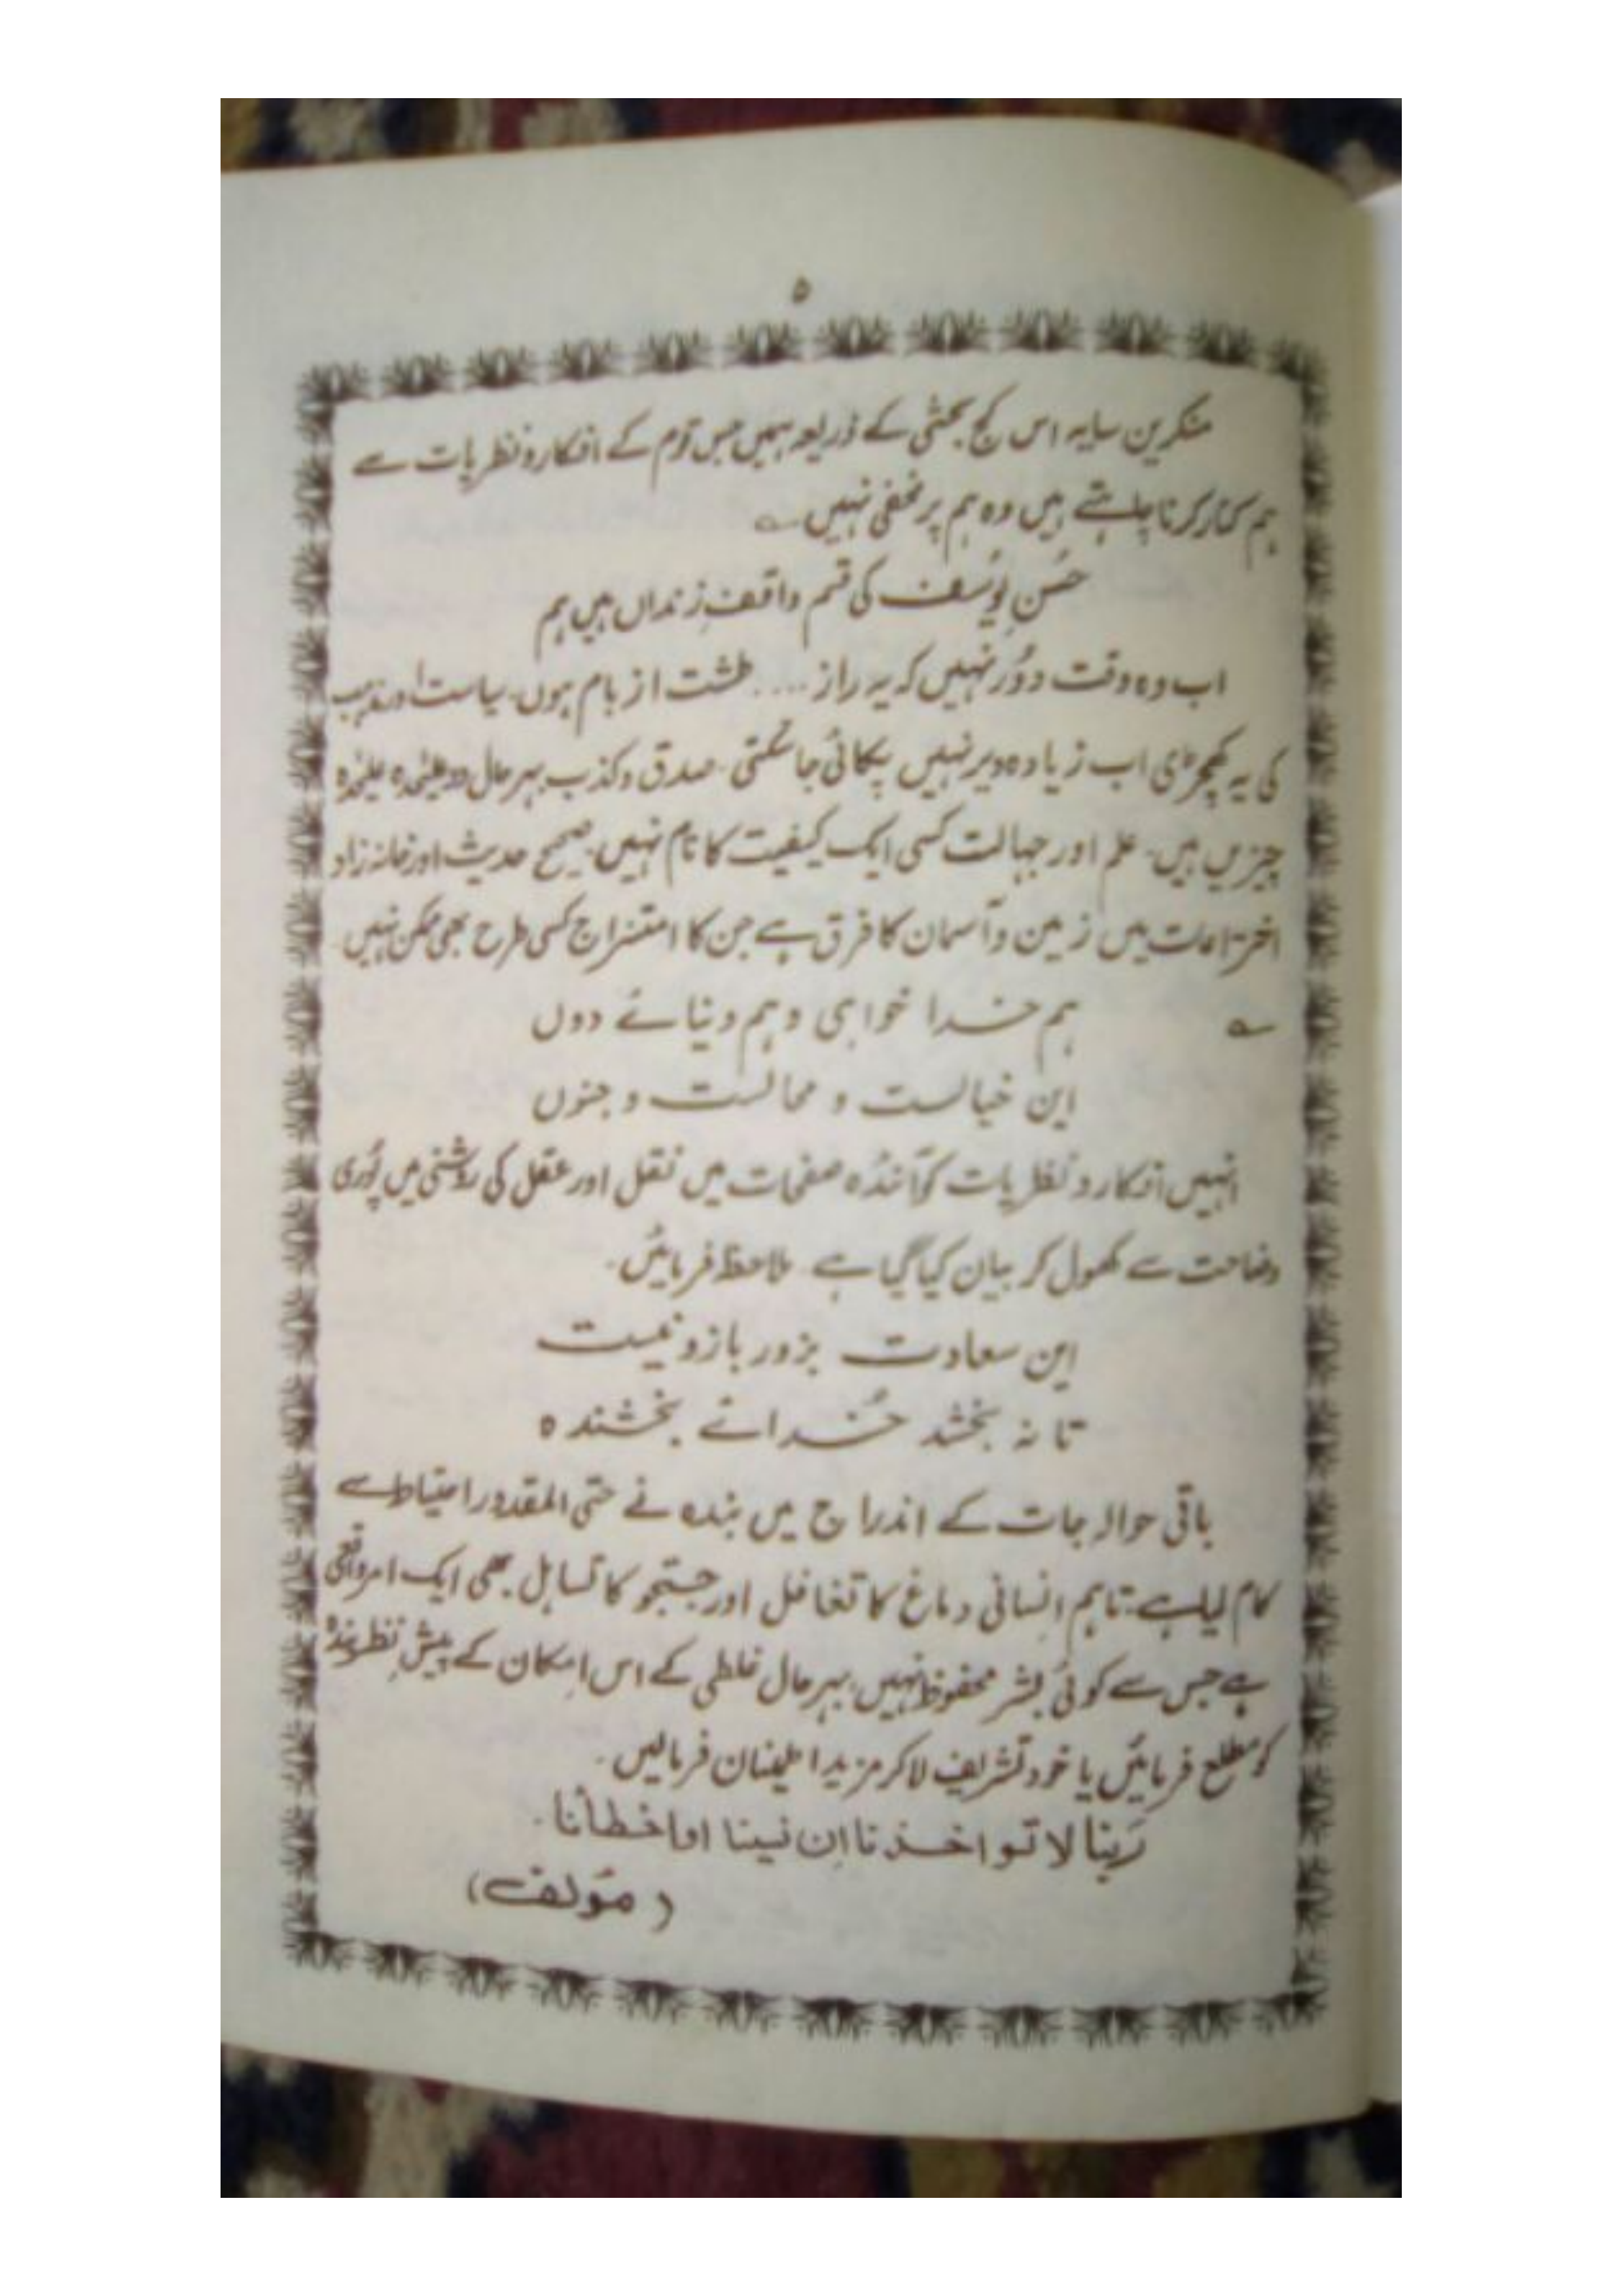 ۵
منکرین سایہ اس کج بحثی کے ذریعہ ہمیں جس قوم کے افکار و نظریات سے
ہم کنار کرنا چاہتے ہیں وہ ہم پر مخفی نہیں ؎
حُسنِ یُوسف کی قسم واقفِ زنداں ہیں ہم
اب وہ وقت دوُر نہیں کہ یہ راز .... طشت از بام ہوں۔ سیاست اور مذہب
کی یہ کھچڑی اب زیادہ دیر نہیں پکائی جا سکتی۔ صدق و کذب بہرحال دو علیٰحدہ علیٰحدہ
چیزیں ہیں۔ علم اور جہالت کسی ایک کیفیت کا نام نہیں۔ صحیح حدیث اور خانہ زاد
اختراعات میں زمین و آسمان کا فرق ہے جن کا امتزاج کسی طرح بھی ممکن نہیں۔
؎ ہم خدا خواہی و ہم دنیائے دوں
این خیالست و محالست و جنوں
انہیں افکار و نظریات کو آئندہ صفحات میں نقل اور عقل کی روشنی میں پُوری
وضاحت سے کھول کر بیان کیا گیا ہے۔ ملاحظہ فرمائیں۔
این سعادت بزور بازو نیست
تا نہ بخشد خُدائے بخشندہ
باقی حوالہ جات کے اندراج میں بندہ نے حتی المقدور احتیاط سے
کام لیا ہے، تاہم اِنسانی دماغ کا تغافل اور جستجو کا تساہل بھی ایک امر واقعی
ہے جس سے کوئی بشر محفوظ نہیں، بہرحال غلطی کے اس اِمکان کے پیشِ نظر بندہ
کو مطلع فرمائیں یا خود تشریف لا کر مزید اطمینان فرمالیں۔
رَبنا لا تواخذنا اِن نسینا او اخطأنا۔
(مؤلف)